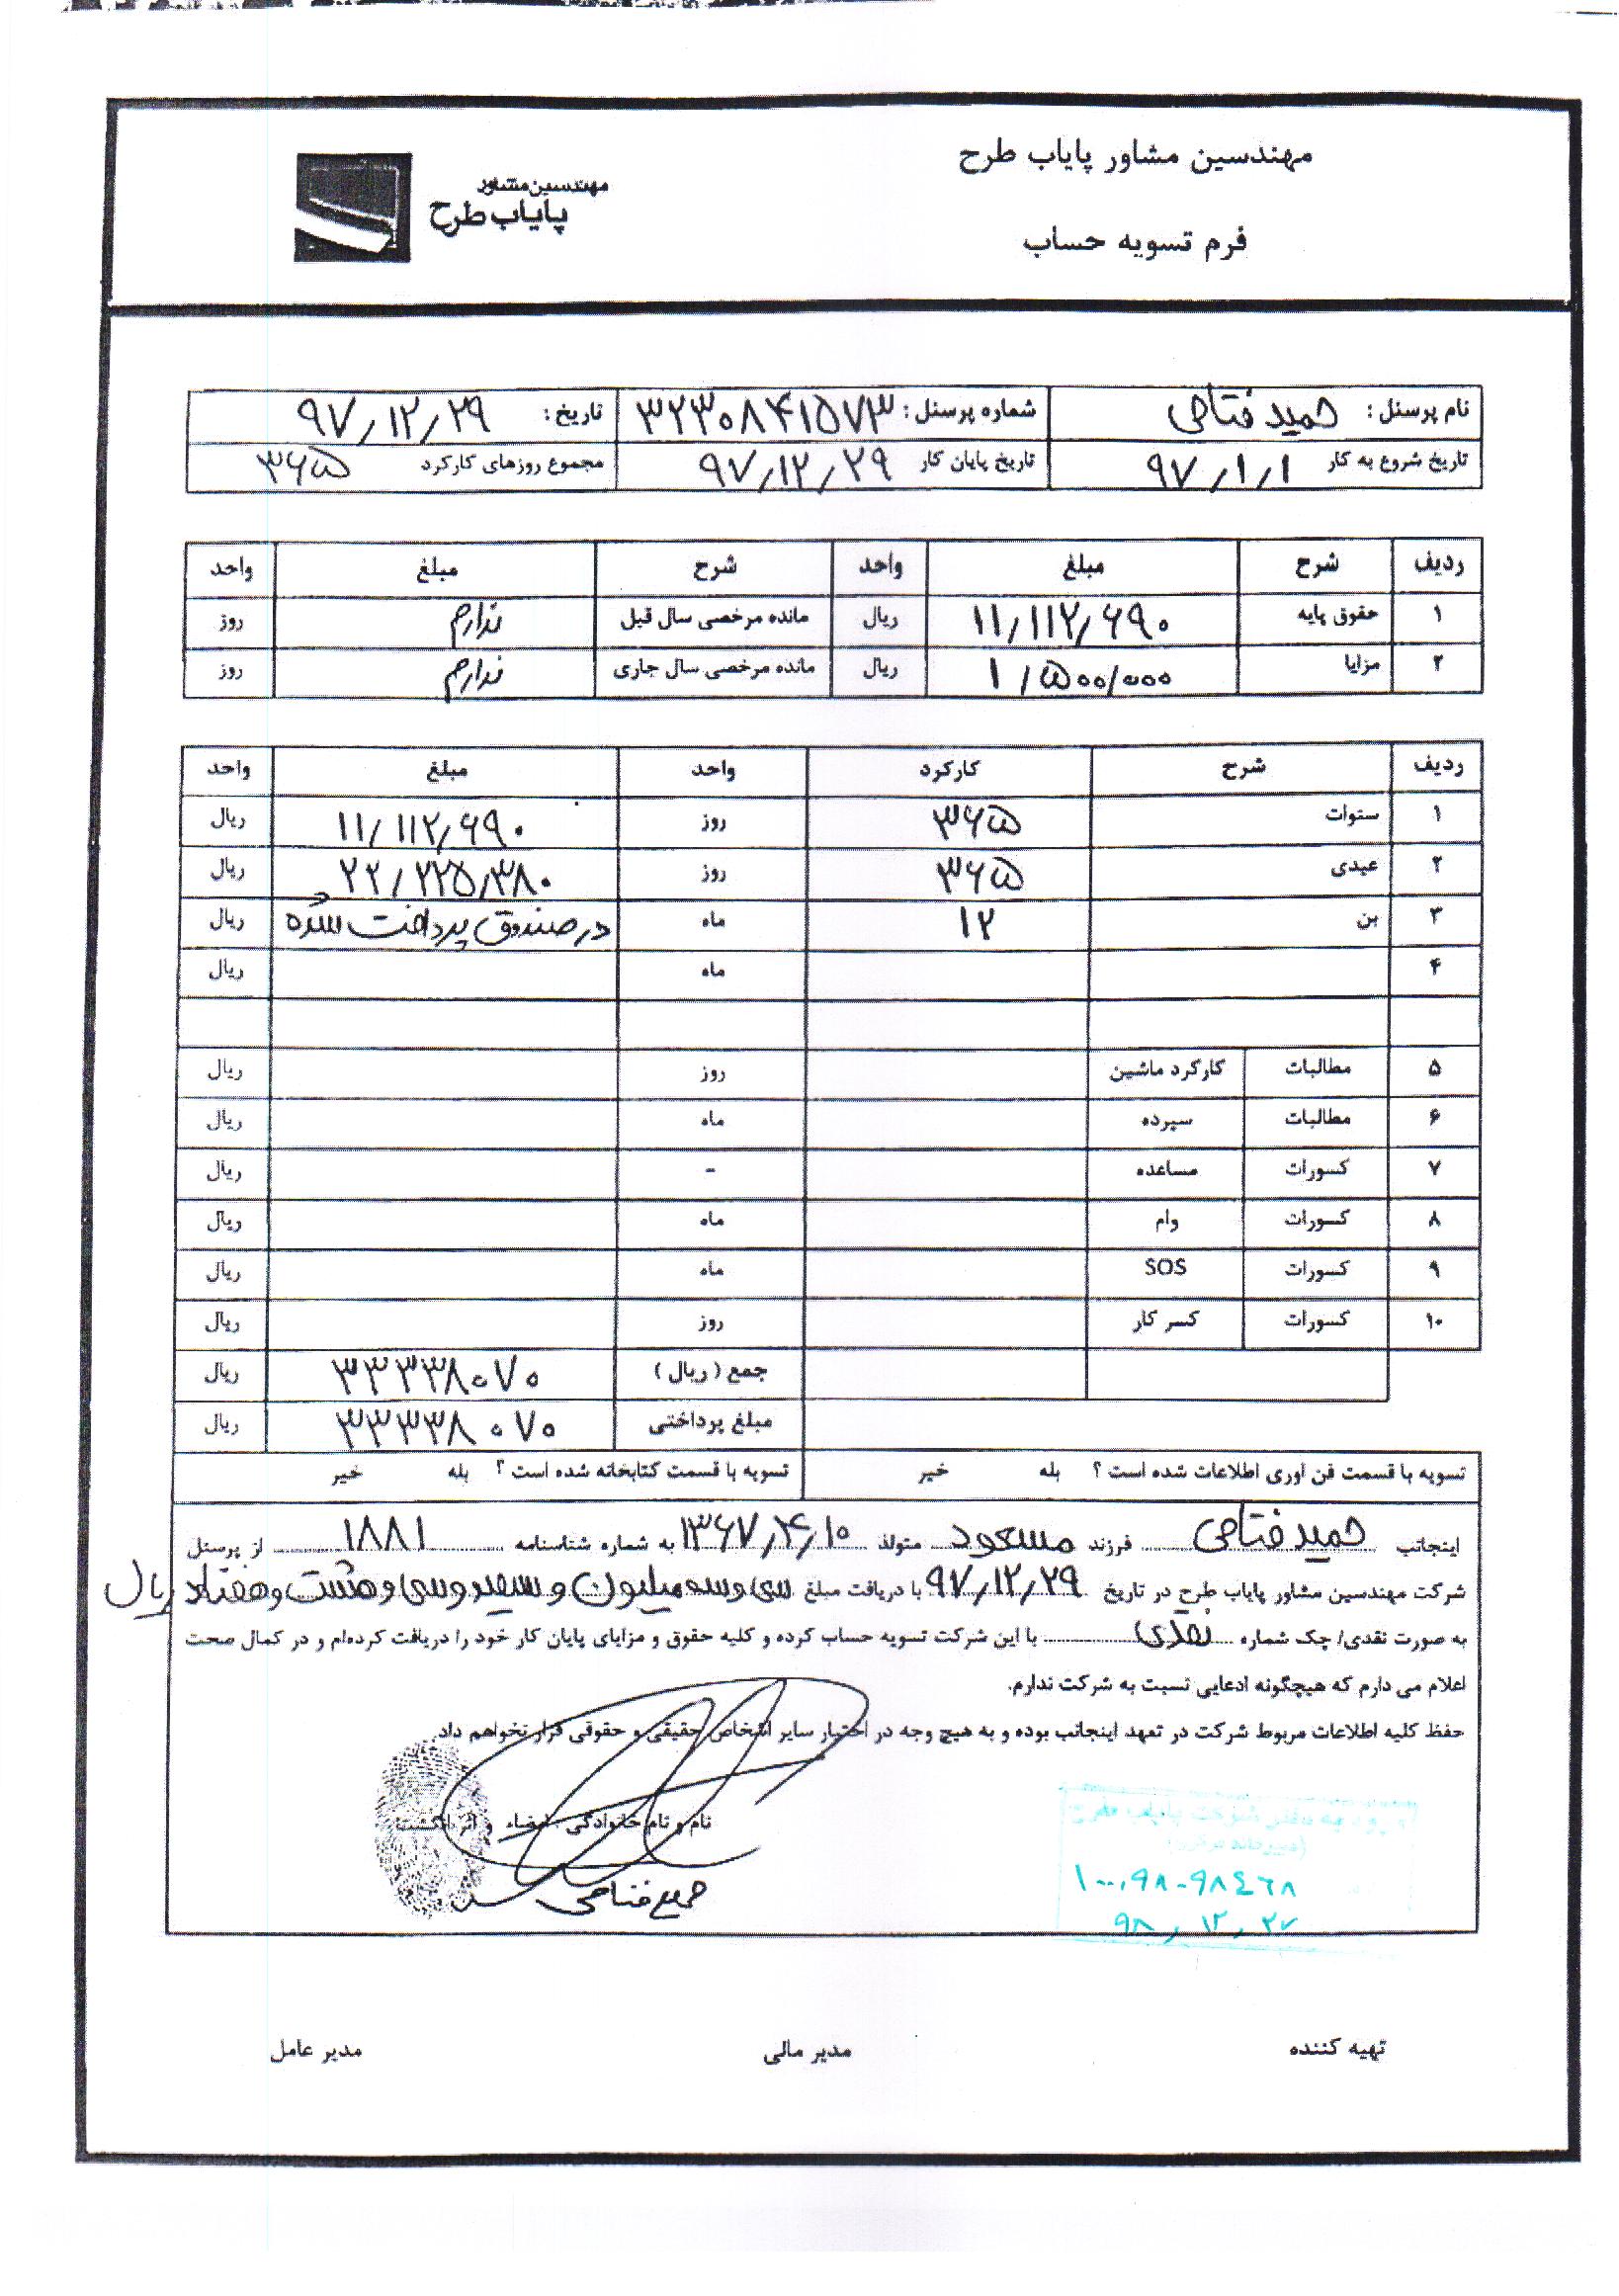 مهندسین مشاور پایاب طرح
مهندسین مشاور
پایاب طرح
فرم تسویه حساب
نام پرسنل : حمید فتاحی شماره پرسنل : ۳۲۳۰۸۴۱۵۷۳ تاریخ : ۹۷/۱۲/۲۹
تاریخ شروع به کار ۹۷/۱/۱ تاریخ پایان کار ۹۷/۱۲/۲۹ مجموع روزهای کارکرد ۳۶۵
ردیف شرح مبلغ واحد شرح مبلغ واحد
۱ حقوق پایه ۱۱/۱۱۲/۶۹۰ ریال مانده مرخصی سال قبل ندارم روز
۲ مزایا ۱/۵۰۰/۰۰۰ ریال مانده مرخصی سال جاری ندارم روز
ردیف شرح کارکرد واحد مبلغ واحد
۱ سنوات ۳۶۵ روز ۱۱/۱۱۲/۶۹۰ ریال
۲ عیدی ۳۶۵ روز ۲۲/۲۲۵/۳۸۰ ریال
۳ بن ۱۲ ماه در صندوق پرداخت شده ریال
۴ ماه ریال
۵ مطالبات کارکرد ماشین روز ریال
۶ مطالبات سپرده ماه ریال
۷ کسورات مساعده - ریال
۸ کسورات وام ماه ریال
۹ کسورات SOS ماه ریال
۱۰ کسورات کسر کار روز ریال
جمع ( ریال ) ۳۳۳۳۸۰۷۰ ریال
مبلغ پرداختی ۳۳۳۳۸۰۷۰ ریال
تسویه با قسمت فن اوری اطلاعات شده است ؟ بله خیر تسویه با قسمت کتابخانه شده است ؟ بله خیر
اینجانب حمید فتاحی فرزند مسعود متولد ۱۳۶۷/۴/۱۰ به شماره شناسنامه ۱۸۸۱ از پرسنل
شرکت مهندسین مشاور پایاب طرح در تاریخ ۹۷/۱۲/۲۹ با دریافت مبلغ سی و سه میلیون و سیصد و سی و هشت و هفتاد ریال
به صورت نقدی/ چک شماره نقدی با این شرکت تسویه حساب کرده و کلیه حقوق و مزایای پایان کار خود را دریافت کرده‌ام و در کمال صحت
اعلام می دارم که هیچگونه ادعایی نسبت به شرکت ندارم.
حفظ کلیه اطلاعات مربوط شرکت در تعهد اینجانب بوده و به هیچ وجه در اختیار سایر اشخاص حقیقی و حقوقی قرار نخواهم داد.
نام و نام خانوادگی ، امضاء و اثر انگشت
حمید فتاحی
۱۰۰،۹۸-۹۸۴۶۸
۹۸/۱۲/۲۷
تهیه کننده مدیر مالی مدیر عامل